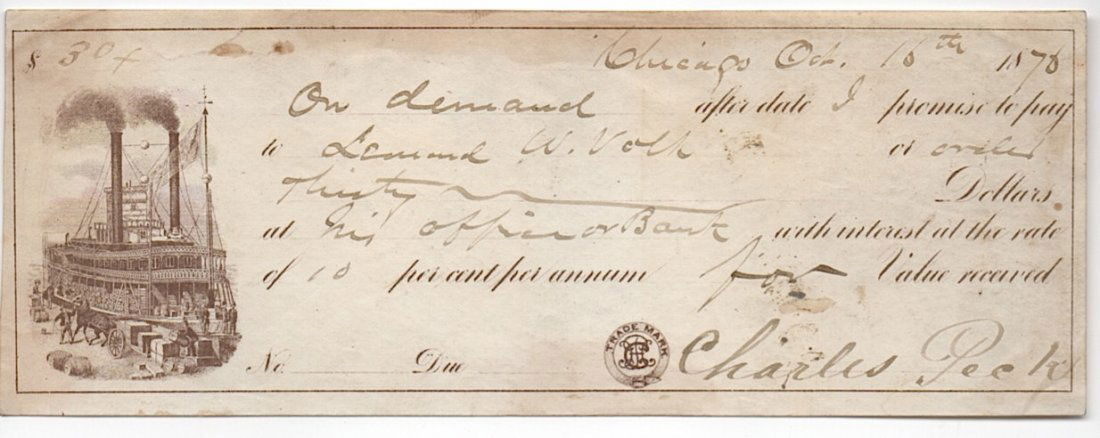 $ 30 Chicago Oct. 16th 1878
On demand after date I promise to pay
to Leonard W. Volk or order
Thirty Dollars.
at his office or Bank with interest at the rate
of 10 per cent per annum for Value received
No. Due TRADE MARK Charles Peck